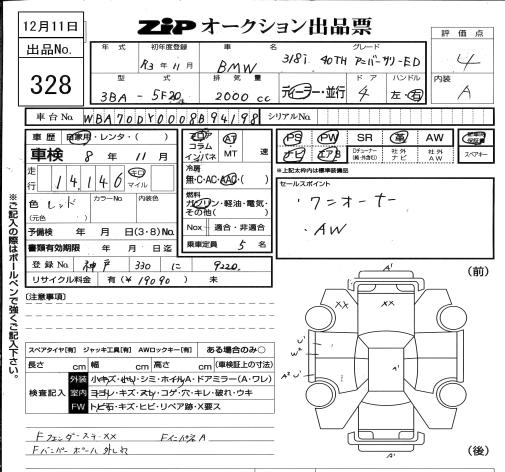 12月11日
ZIP オークション出品票
評価点
4
出品No.
328
年式 初年度登録 車名 グレード
R3年11月 BMW 318i 40TH アニバーサリーED
型式 排気量 ドア ハンドル
3BA - 5F20 2000cc ディーラー・並行 4 左・右
内装
A
車台No. WBA70DY0008B94198 シリアルNo.
車歴 自家用・レンタ・( )
車検 8年11月
走行 14,146 キロ マイル
色 レッド カラーNo. 内装色
(元色 )
フロア コラム インパネ AT ・MT 速
冷房
無・C・AC・AAC・( )
燃料
ガソリン・軽油・電気・その他( )
Nox 適合・非適合
乗車定員 5名
PS PW SR 革 AW
ナビ エアB 社外ナビ 社外AW スペアキー
*上記太枠内は標準装備品
セールスポイント
・ワンオーナー
・AW
予備検 年 月 日(3・8)No.
書類有効期限 年 月 日迄
登録No. 神戸 330 に 9220
リサイクル料金 有(¥19090) 未
※ご記入の際はボールペンで強くご記入下さい。
(注意事項)
スペアタイヤ[有] ジャッキ工具[有] AWロックキー[有] ある場合のみ○
長さ cm 幅 cm 高さ cm (車検証上の寸法)
検査記入
外装 小キズ・小凹・シミ・ホイルA・ドアミラー(A・ワレ)
室内 ヨゴレ・キズ・スリ・コゲ・穴・キレ・破れ・ウキ
FW トビ石・キズ・ヒビ・リペア跡・X要ス
Fフェンダーステ-XX FインパネA
Fバンパー ホール 外しキズ
(前)
A'
XX XX
U'
W2
A2 U'
A'
(後)